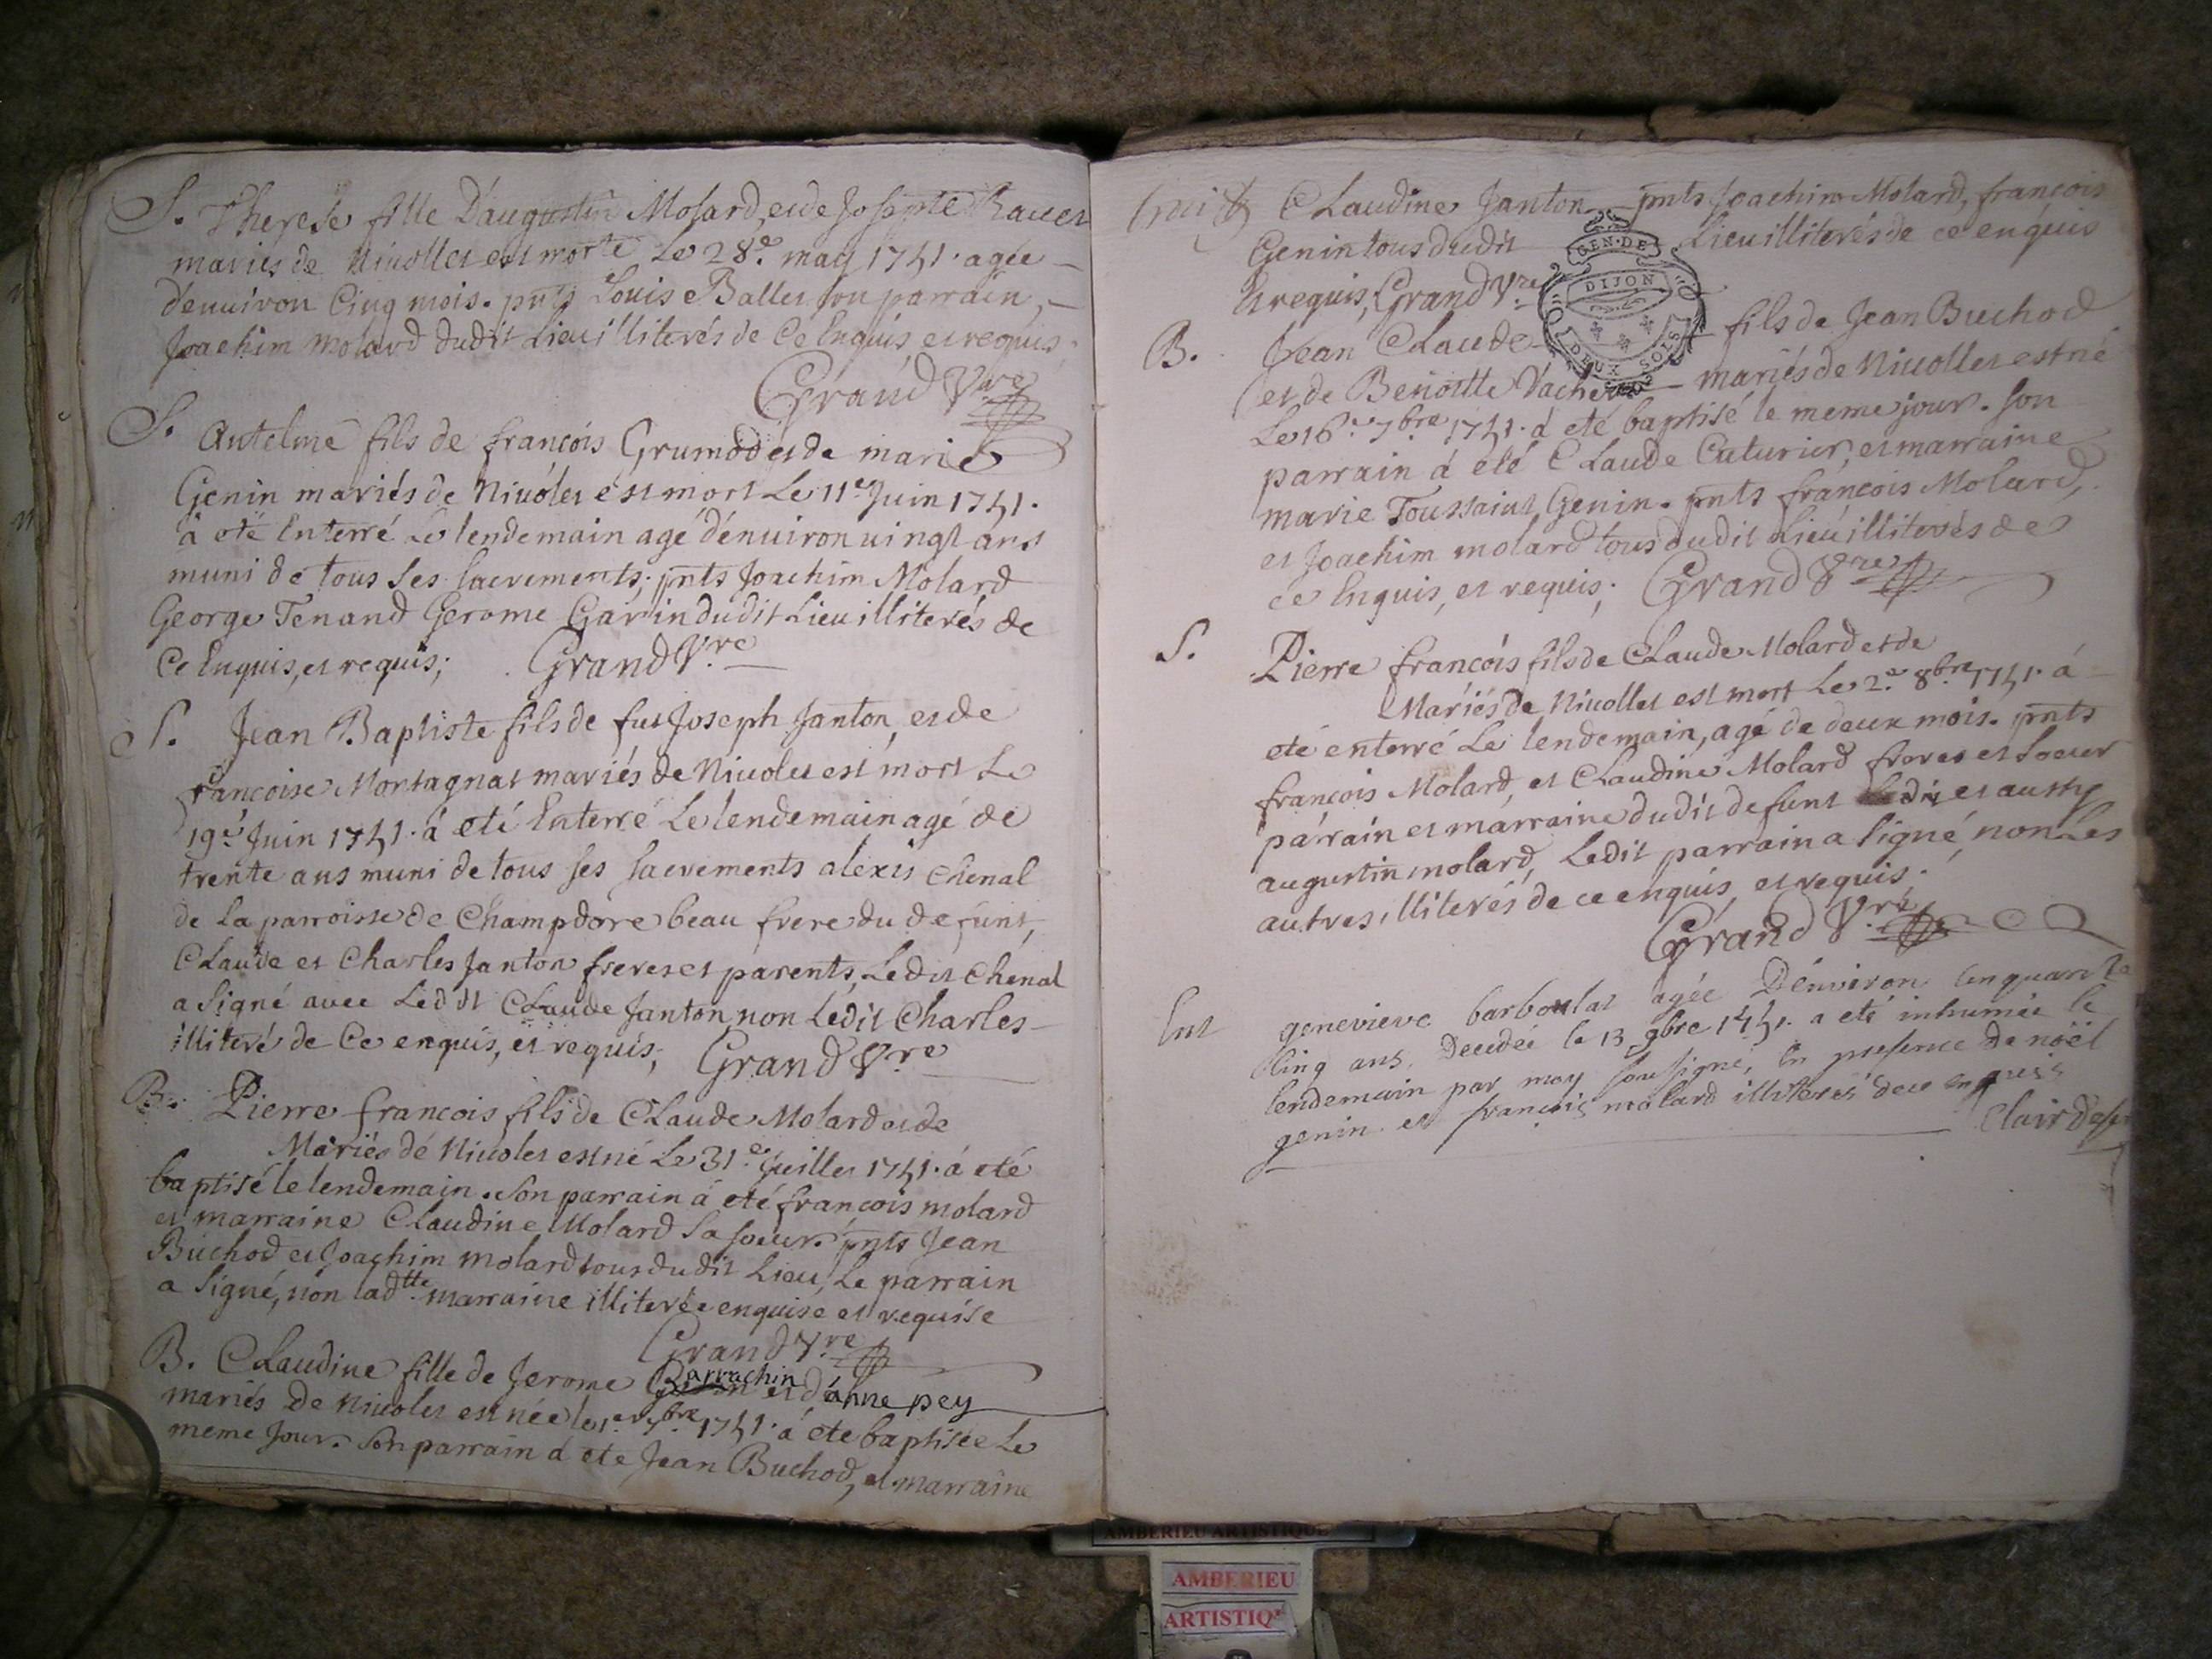 S. Therese fille D'augustin Molard, et de Josepte Ravet
mariés de Nivollet est morte Le 28e. may 1741. agée
d'environ Cinq mois. pnts Louis Ballet son parrain,
Joachim molard dudit Lieu illiterés de Ce Enquis et requis.
Grand Vre
S. Antelme fils de françois Grumod et de marie
Genin mariés de Nivolet est mort Le 11e Juin 1741.
à eté Enterré Le lendemain agé d'environ vingt ans
muni de tous Ses Sacrements; pnts Joachim Molard
George Tenand Gerome Garin dudit Lieu illiterés de
Ce Enquis, et requis; Grand Vre
S. Jean Baptiste fils de fut Joseph Janton, et de
françoise Montagnat mariés de Nivolet est mort Le
19e Juin 1741. à eté Enterré Le lendemain agé de
trente ans muni de tous ses Sacrements alexis Chenal
de la parroisse de Champdore beau frere du defunt,
Claude et Charles Janton freres et parents, Ledit Chenal
a Signé avec Ledit Claude Janton non Ledit Charles
illiteré de Ce enquis, et requis; Grand Vre
B. Pierre francois fils de Claude Molard et de
Mariés de Nivolet est né Le 31e. Juillet 1741. á eté
baptisé le lendemain. Son parrain á eté françois molard
et marraine Claudine Molard Sa soeur. pnts Jean
Buchod et Joachim molard tous dudit Lieu, Le parrain
a Signé, non ladtte marraine illiterée enquise et requise
Grand Vre
B. Claudine fille de Jerome Barrachin et d'anne pey
mariés De Nivolet est née le 1er 7bre 1741. á ete baptisée Le
meme Jour. Son parrain á ete Jean Buchod, et marraine
Claudine Janton pnts Joachim Molard, françois
Genin tous dudit Lieu illiterés de ce enquis
Et requis, Grand Vre
GEN. DE
DIJON
DEUX SOLS
B. Jean Claude fils de Jean Buchod
et de Benoitte Vacher mariés de Nivollet est né
Le 16e 7bre 1741. á eté baptisé le meme jour. Son
parrain á eté Claude Cuturier, et marraine
marie Toussaint Genin. pnts françois Molard,
et Joachim molard tous dudit Lieu illiterés de
ce Enquis, et requis; Grand Vre
S. Pierre francois fils de Claude Molard et de
Mariés de Nivollet est mort Le 2e 8bre 1741. á
eté enterré Le lendemain, agé de deux mois. pnts
françois Molard, et Claudine Molard freres et soeur
parrain et marraine dudit defunt et aussy
augustin molard, Ledit parrain a signé, non Les
autres illiterés de ce enquis, et requis;
Grand Vre
Ent genevieve barboulat agée D'environ Cinquante
Cinq ans Decedée le 13 9bre 1741. a eté inhumée le
lendemain par moy soussigné, En presence De noël
genin et françois molard illiterés de ce enquis
AMBERIEU ARTISTIQUE
AMBERIEU
ARTISTIQ